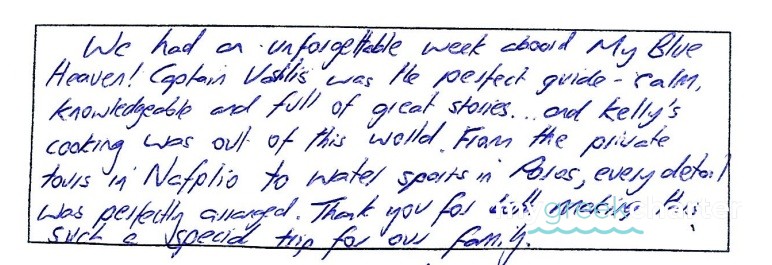 We had an unforgettable week aboard My Blue
Heaven! Captain Vasilis was the perfect guide - calm,
knowledgeable and full of great stories... and Kelly's
cooking was out of this world. From the private
tours in Nafplio to water sports in Poros, every detail
was perfectly arranged. Thank you for making this
such a special trip for our family.